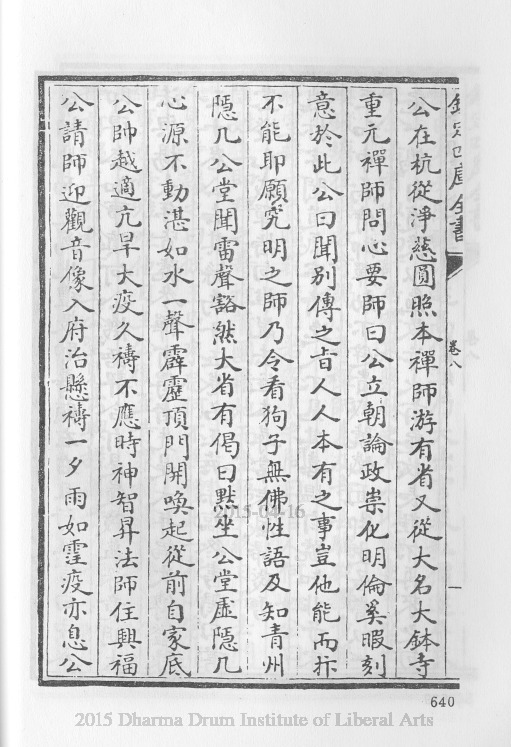 欽定四庫全書
卷八
一
公在杭從淨慈圓照本禪師游有省又從大名大鉢寺
重元禪師問心要師曰公立朝論政崇化明倫奚暇刻
意於此公曰聞别傳之㫖人人本有之事豈他能而抃
不能耶願究明之師乃令看狗子無佛性語及知青州
隱几公堂聞雷聲豁然大省有偈曰黙坐公堂虛隱几
心源不動湛如水一聲霹靂頂門開喚起從前自家底
公帥越適亢旱大疫久禱不應時神智昇法師住興福
公請師迎觀音像入府治懸禱一夕雨如霔疫亦息公
2015-04-16
640
2015 Dharma Drum Institute of Liberal Arts